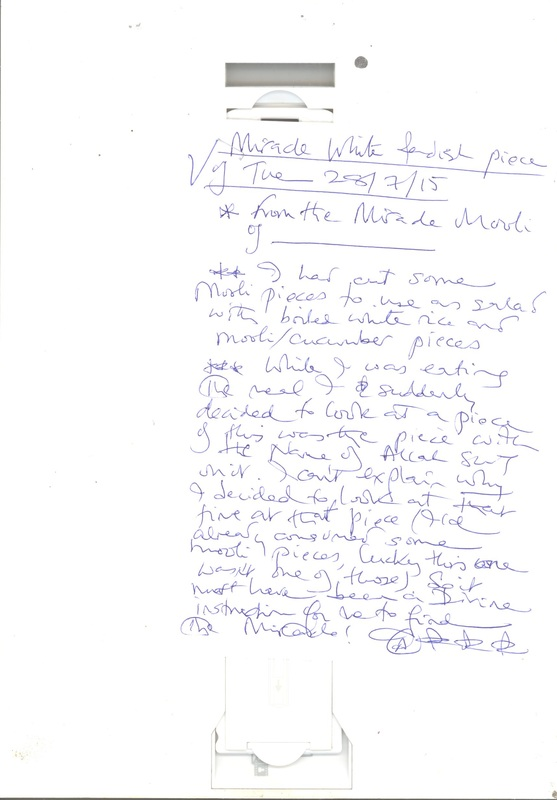 Miracle White Radish piece
of Tue 28/7/15
* from the Miracle Mooli
of
** I had cut some
Mooli pieces to use as salad
with boiled white rice and
mooli/cucumber pieces
*** While I was eating
the meal I suddenly
decided to look at a piece
of this was the piece with
the Name of Allah SWT
on it. I can't explain why
I decided to look at that
time at that piece (I'd
already consumed some
mooli pieces, lucky this one
wasn't one of those) So it
must have been a Divine
instruction for me to find
The Miracle!